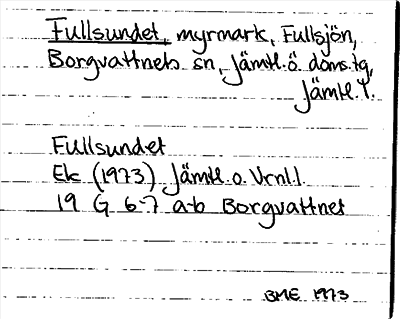 Fullsundet, myrmark, Fullsjön,
Borgvattnets sn, Jämtl. ö. doms.tg,
Jämtl. l.
Fullsundet
Ek (1973) Jämtl. o. V.rnl.l.
19 G 6-7 a-b Borgvattnet
BME 1973